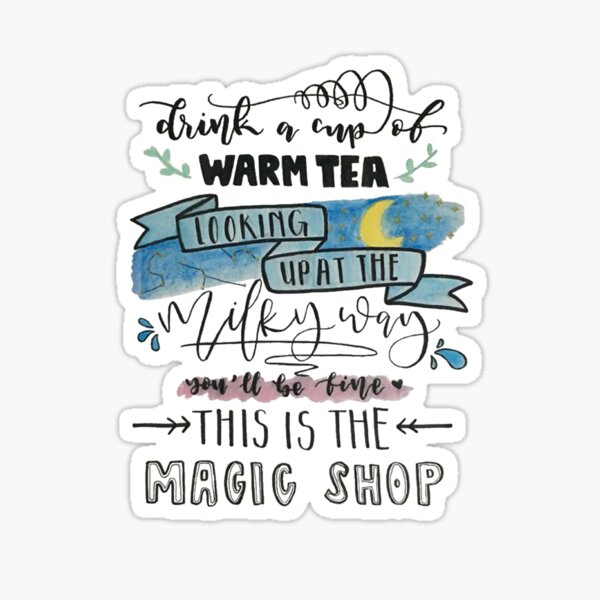 drink a cup of
WARM TEA
LOOKING
UP AT THE
Milky way
you'll be fine
THIS IS THE
MAGIC SHOP